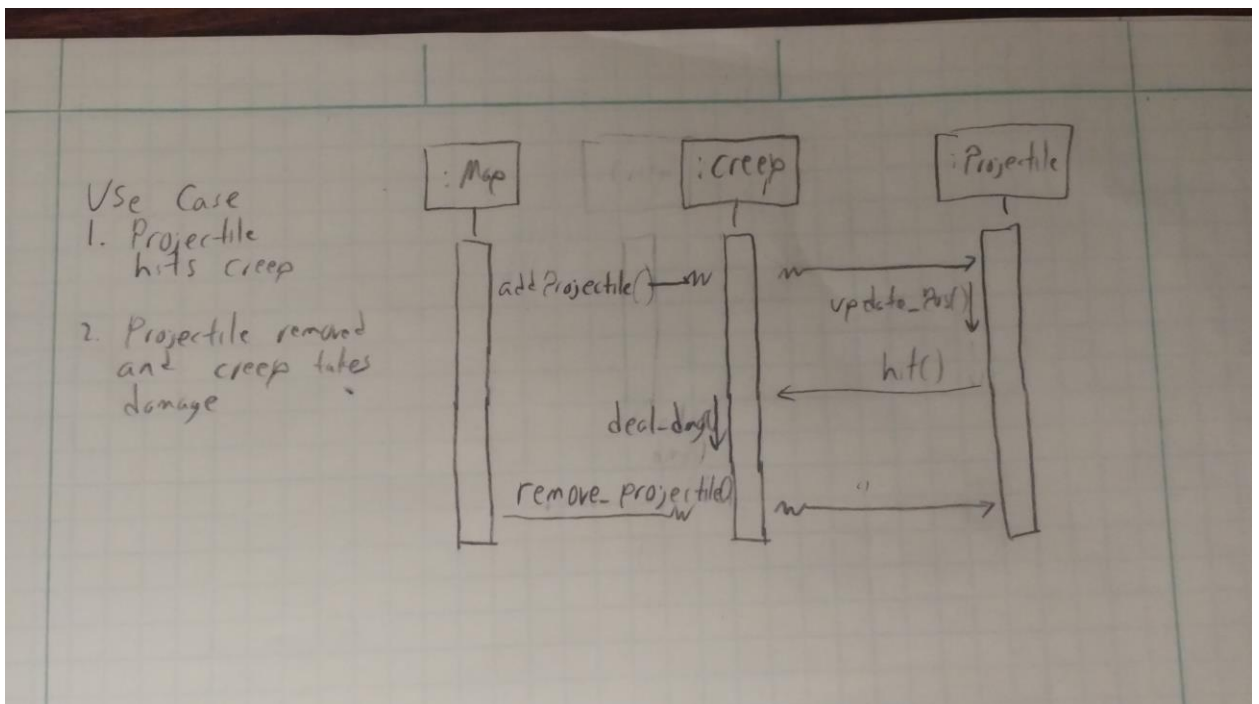 Use Case
1. Projectile
hits creep
2. Projectile removed
and creep takes
damage
: Map
: Creep
: Projectile
addProjectile()
update_Pos()
hit()
deal_dmg()
remove_projectile()